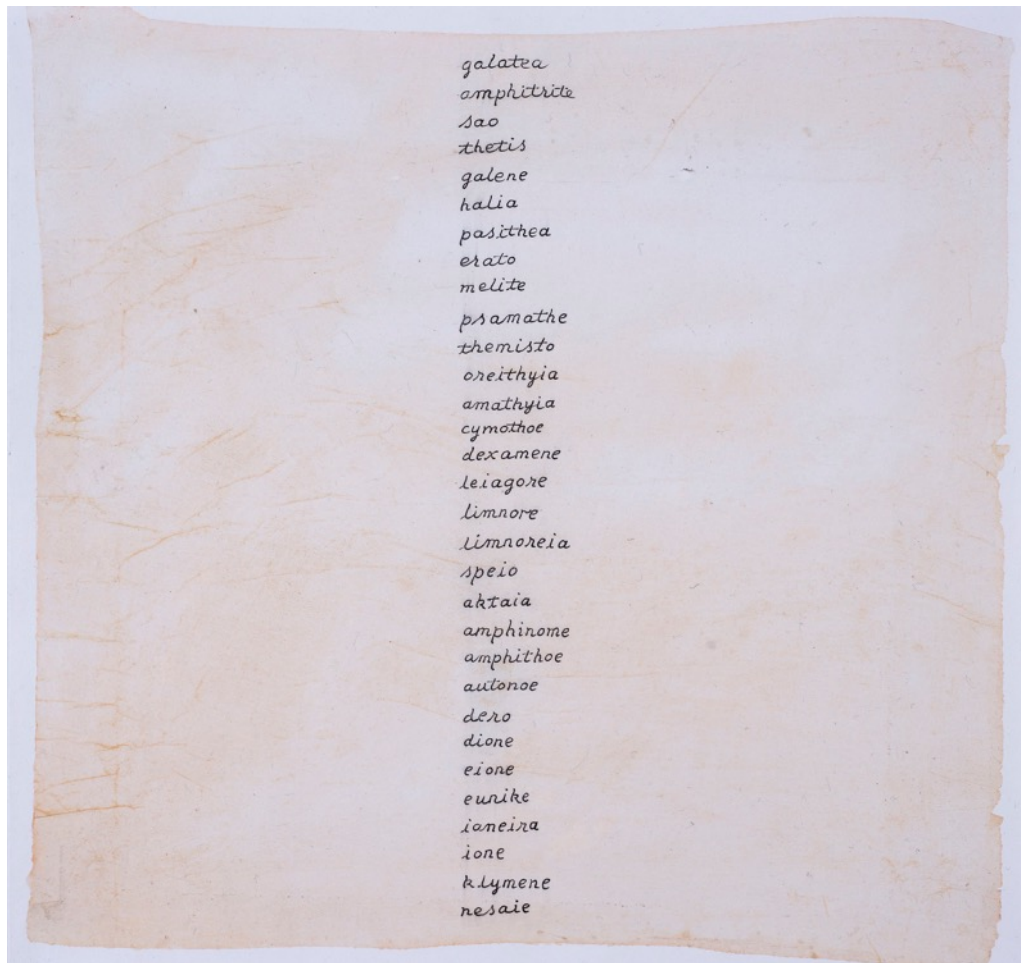 galatea
amphitrite
sao
thetis
galene
halia
pasithea
erato
melite
psamathe
themisto
oreithyia
amathyia
cymothoe
dexamene
leiagore
limnore
limnoreia
speio
aktaia
amphinome
amphithoe
autonoe
dero
dione
eione
eunike
ianeira
ione
klymene
nesaie